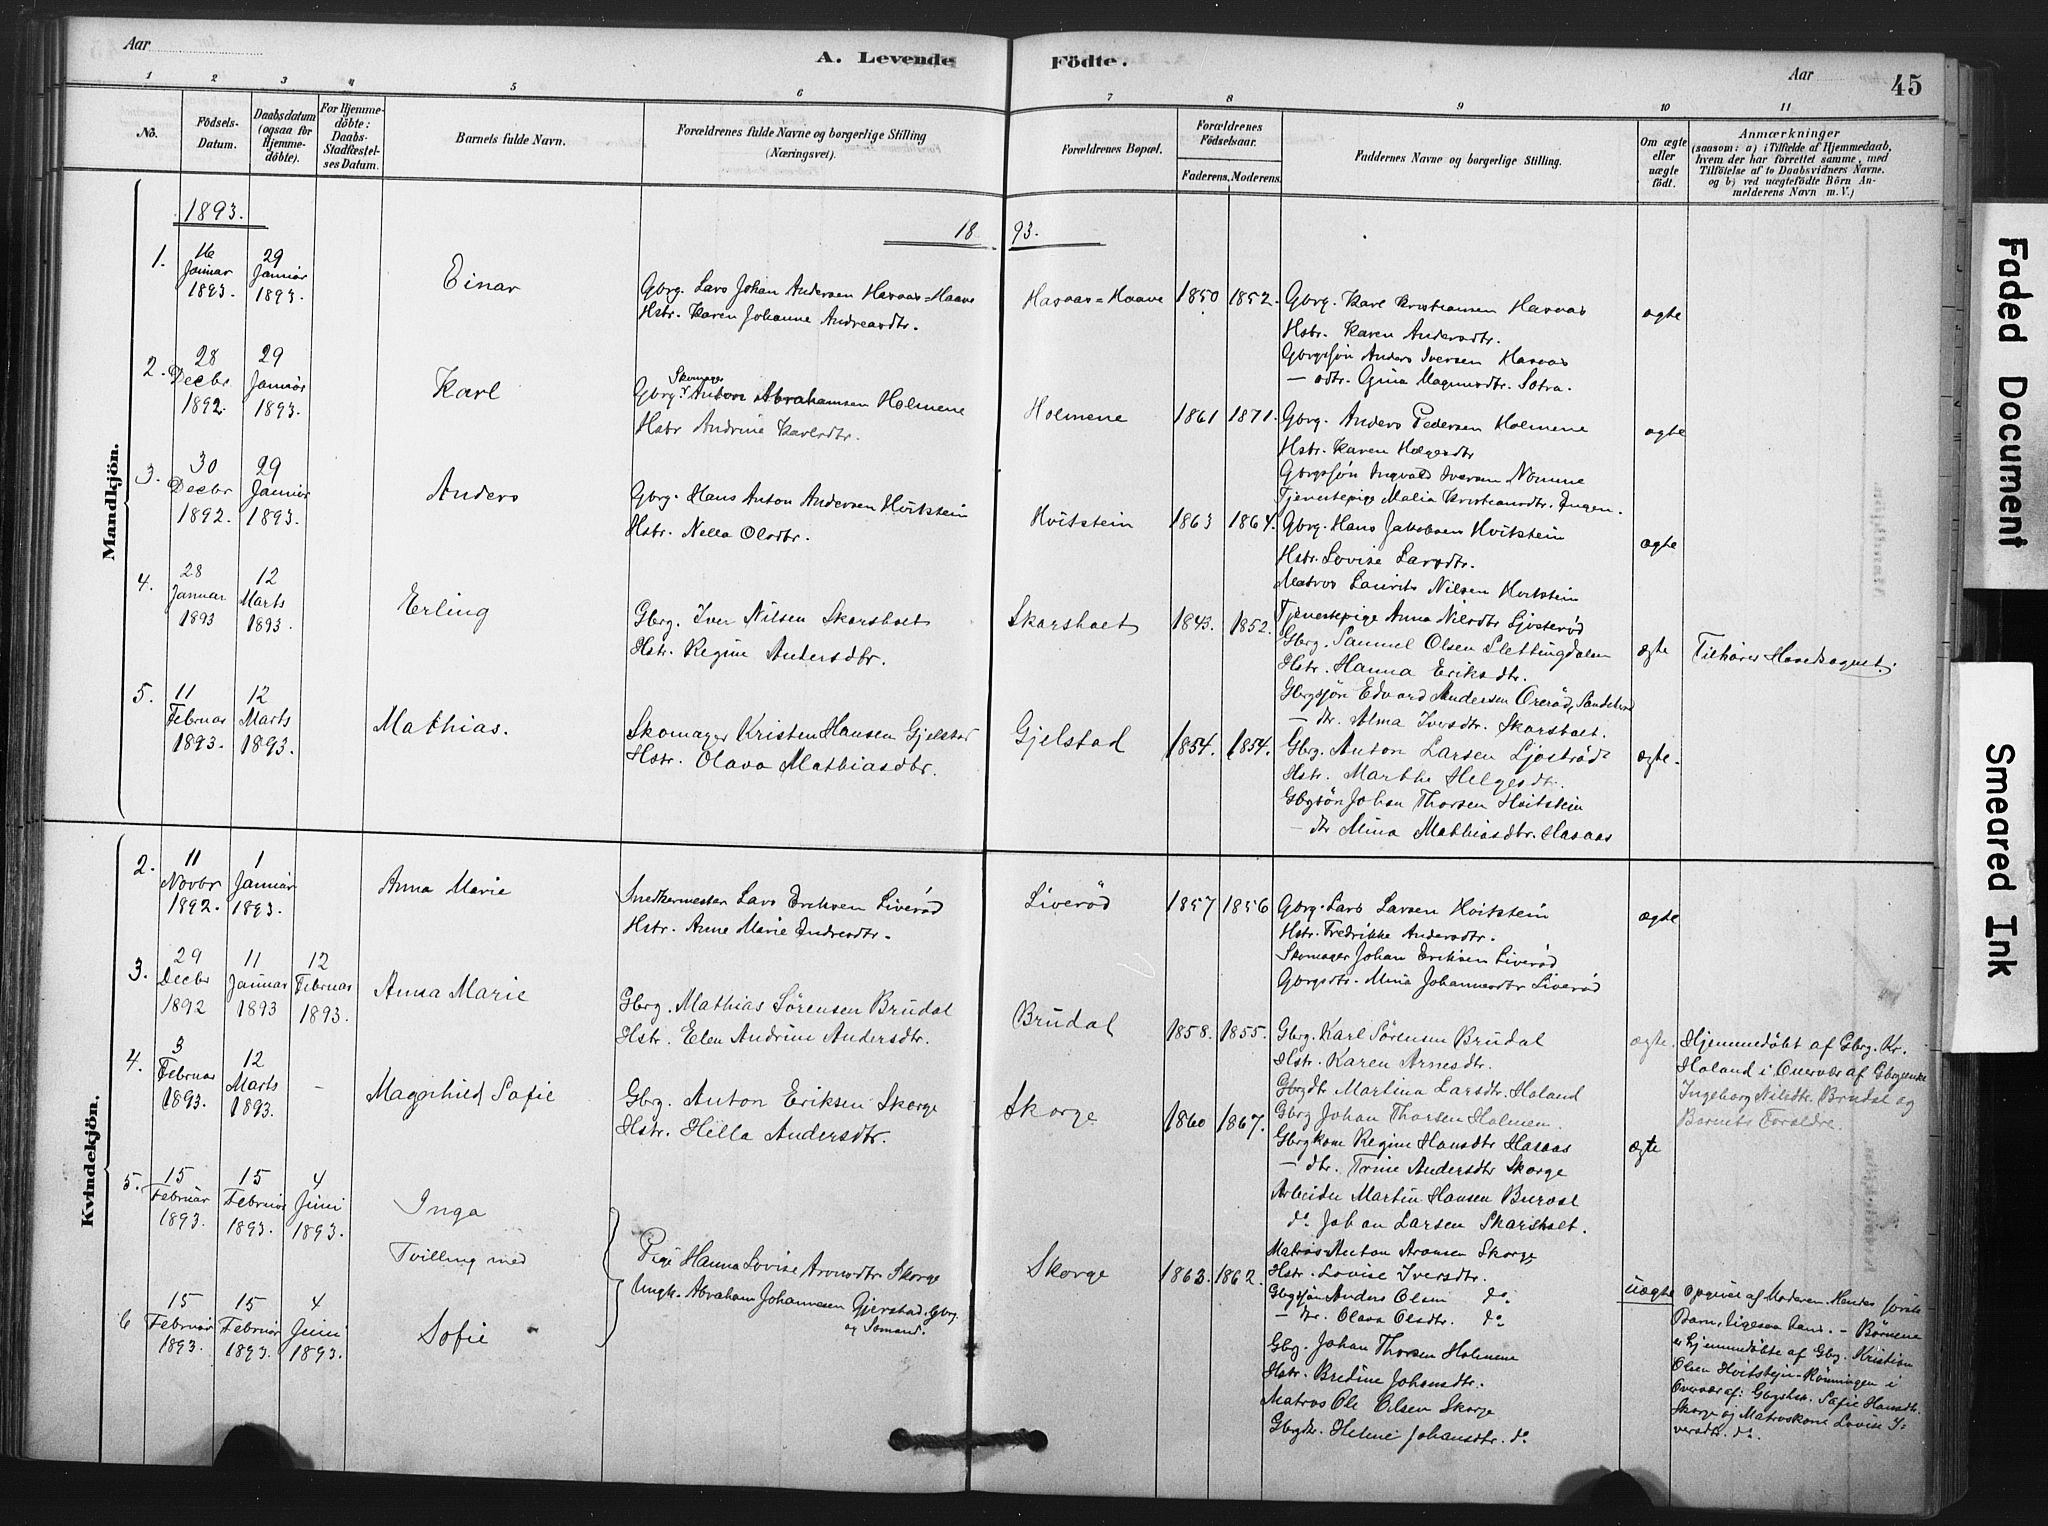 Aar
A. Levende Födte.
Aar
45
1 2 3 4 5 6 7 8 9 10 11
No.
Födsels-Datum.
Daabsdatum (ogsaa for Hjemmedöbte).
For Hjemmedöbte: Daabs-Stadfæstelses Datum.
Barnets fulde Navn.
Forældrenes fulde Navne og borgerlige Stilling (Næringsvei).
Forældrenes Bopæl.
Forældrenes Födselsaar.
Faderens. Moderens.
Faddernes Navne og borgerlige Stilling.
Om ægte eller uægte født.
Anmærkninger
(saasom: a) i Tilfælde af Hjemmedaab,
hvem der har forrettet samme, med
Tilföielse af to Daabsvidners Navne.
og b) ved uægtefödte Börn Anmelderens Navn m. V.)
1893.
18 93.
Mandkjön.
1.
16 Januar 1893.
29 Januar 1893.
Einar
Gbrg. Lars Johan Andersen Havaas=Haave
Hstr. Karen Johanne Andreasdtr.
Havaas=Haave
1850 1852.
Gbrg. Karl Kristiansen Havaas
Hstr. Karen Andersdtr.
Gbrgssøn Anders Iversen Havaas
— sdtr. Gina Magnusdtr. Sotra.
ægte
2.
28 Decbr 1892.
29 Januar 1893.
Karl
Skomager
Gbrg. Anton Abrahamsen Holmene
Hstr Andrine Karlsdtr.
Holmene
1861 1871.
Gbrg. Anders Pedersen Holmene
Hstr. Karen Helgesdtr
Gbrgssøn Ingvald Iversen Nomme
Tjenestepige Malia Kristiansdtr. Engen.
ægte
3.
30 Decbr 1892.
29 Januar 1893.
Anders
Gbrg. Hans Anton Andersen Hvitstein
Hstr. Nella Olsdtr.
Hvitstein
1863 1864.
Gbrg. Hans Jakobsen Hvitstein
Hstr. Lovise Larsdtr.
Matros Laurits Nilsen Hvitstein
Tjenestepige Anna Nilsdtr Ljøsterød
ægte
4.
28 Januar 1893
12 Marts 1893.
Erling
Gbrg. Iver Nilsen Skarsholt
Hstr. Regine Andersdtr.
Skarsholt
1843. 1852.
Gbrg. Samuel Olsen Slettingdalen
Hstr. Hanna Eriksdtr.
Gbrgsøn Edvard Andersen Ørerød, Sandeherred
— dtr. Alma Iversdtr. Skarsholt.
ægte
Tilhører Hovedsognet.
5.
11 Februar 1893.
12 Marts 1893.
Mathias.
Skomager Kristen Hansen Gjelstad
Hstr. Olava Mathiasdtr.
Gjelstad
1854. 1854.
Gbrg. Anton Larsen Ljøstrød
Hstr. Marthe Helgesdtr.
Gbgsøn Johan Thorsen Hvitstein
— dtr Mina Mathiasdtr. Havaas
ægte.
Kvindekjön.
2.
11 Novbr 1892.
1 Januar 1893.
Anna Marie
Snedkermester Lars Eriksen Liverød
Hstr. Anne Marie Andreasdtr.
Liverød
1857 1856
Gbrg. Lars Larsen Hvitstein
Hstr. Fredrikke Andersdtr.
Skomager Johan Eriksen Liverød
Gbrgsdtr. Mina Johannesdtr Liverød
ægte
3.
29 Decbr 1892
11 Januar 1893
12 Februar 1893.
Anna Marie
Gbrg. Mathias Sørensen Brudal
Hstr. Elen Andrine Andersdtr.
Brudal
1858. 1855.
Gbrg. Karl Sørensen Brudal
Hstr. Karen Arnesdtr.
Gbrgdtr Martina Larsdtr. Holand
Gbrg Johan Thorsen Holmen.
ægte.
Hjemmedøbt af Gbrg. Kr.
Holand i Overvær af Gbrgenke
Ingeborg Nilsdtr. Brudal og
Barnets Forældre.
4.
3 Februar 1893.
12 Marts 1893.
–
Magnhild Sofie
Gbrg. Anton Eriksen Skorge
Hstr. Hilla Andersdtr.
Skorge
1860 1867.
Gbrgkone Regine Hansdtr Havaas
— dtr. Trine Andersdtr Skorge
Arbeider Martin Hansen Burvol
do Johan Larsen Skarsholt.
ægte
5.
15 Februar 1893.
15 Februar 1893.
4 Juni 1893.
Inga
Tvilling med
6
15 Februar 1893.
15 Februar 1893.
4 Juni 1893.
Sofie
Pige Hanna Lovise Aronsdtr Skorge
Ungk. Abraham Johannesen Gjerstad, Gbrg.
og Sømand.
Skorge
1863. 1862.
Matros Anton Aronsen Skorge
Hstr. Lovise Iversdtr.
Gbgsøn Anders Olsen do
— dtr. Olava Olsdtr. do
Gbg. Johan Thorsen Holmene
Hstr. Bredine Johansdtr.
Matros Ole Olsen Skorge
Gbgdtr. Helene Johansdtr. do
uægte
Opgivet af Moderen. Hendes første
Barn, ligesaa hans. – Børnene
er hjemmedøbte af Gbg. Kristian
Olsen Hvitstein-Rønningen i
Overvær af: Gbgehstr. Sofie Hansdtr.
Skorge og Matroskone Lovise I-
versdtr. do
Faded Document
Smeared Ink